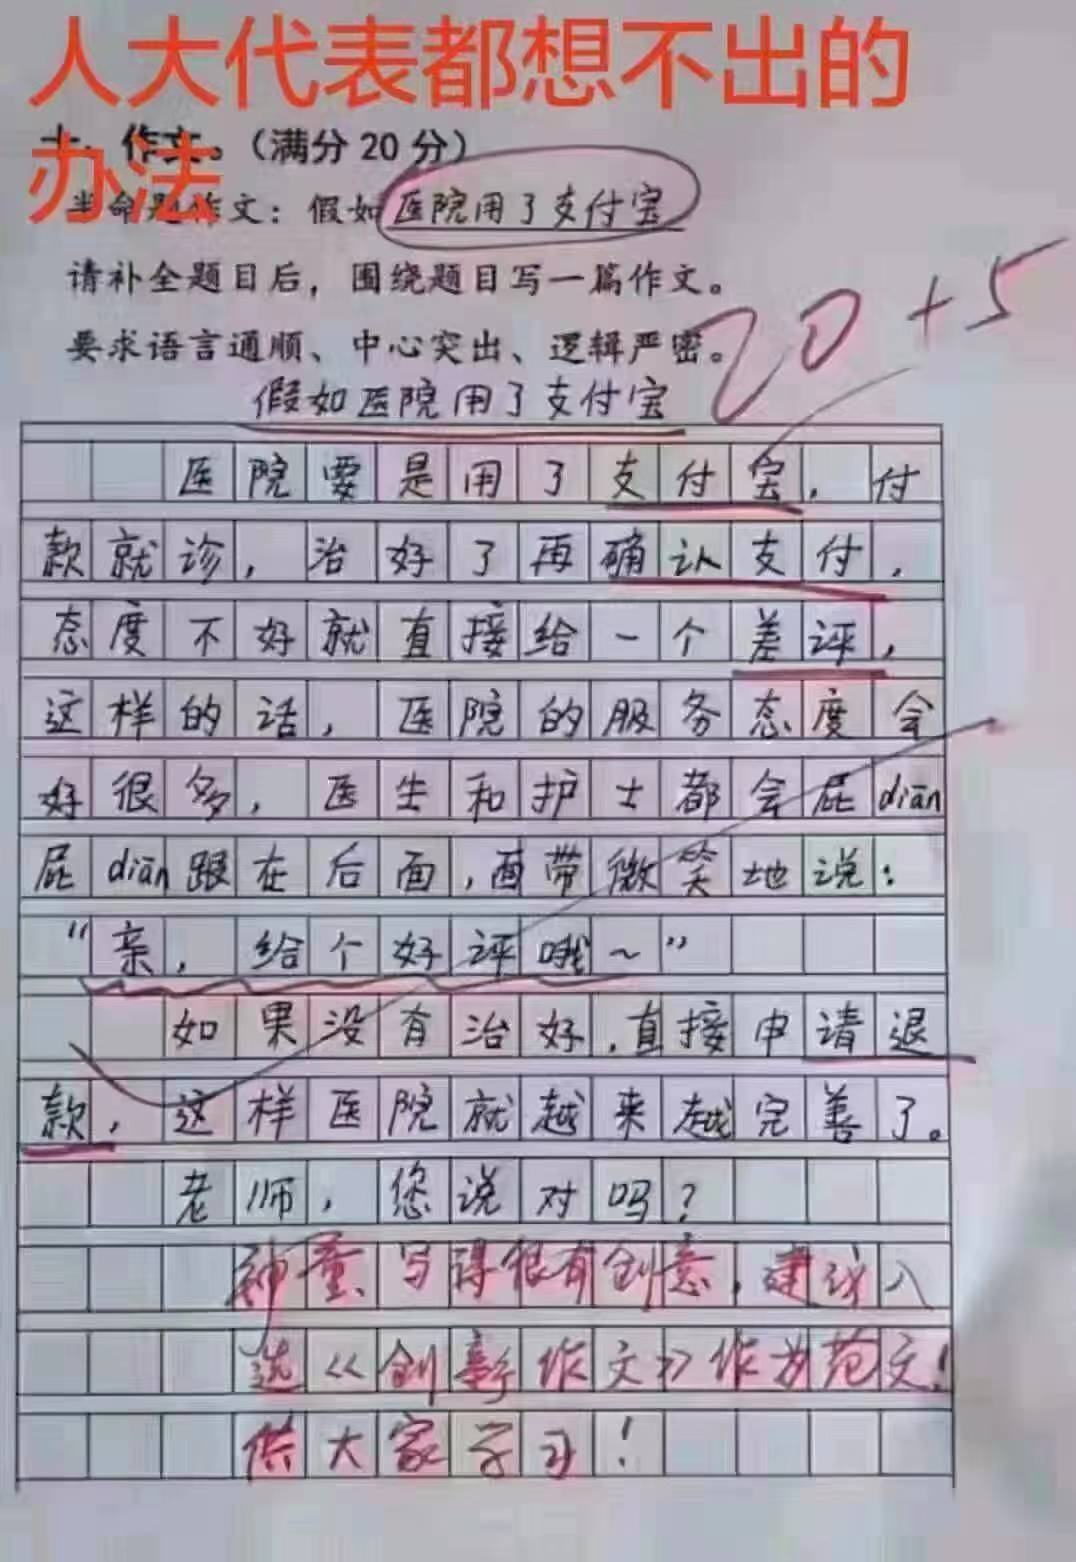 人大代表都想不出的
办法
七、作文。(满分20分)
半命题作文：假如医院用了支付宝
请补全题目后，围绕题目写一篇作文。
要求语言通顺、中心突出、逻辑严密。
20+5
假如医院用了支付宝
医院要是用了支付宝，付
款就诊，治好了再确认支付，
态度不好就直接给一个差评，
这样的话，医院的服务态度会
好很多，医生和护士都会屁diān
屁diān跟在后面，面带微笑地说：
“亲，给个好评哦～”
如果没有治好，直接申请退
款，这样医院就越来越完善了。
老师，您说对吗？
神童、写得很有创意，建议入
选《创新作文》作为范文！
供大家学习！